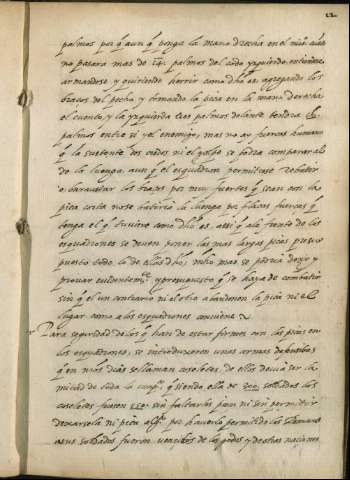 palmos por q̃ aun q̃ tenga la mano drecha en el
no passara mas de 24. palmos del codo yzquierdo
armandose y quiriendo herrir como dho es, apegando los
braços del pecho y tomando la pica en la mano derecha
el cuento, y la yzquierda tres palmos delante tendra
palmos entre si y el enemigo, mas no ay fuerças humanas
q̃ la sustente dos credos ni el golpe se podra comparar al
de la luenga, aun q̃ el esquadron permitiese rebatir
o baraustar los braços por muy fuertes q̃ sean con la
pica corta no se batiria la luenga por flacas fuerças q̃
tenga el q̃ tuviere como dho es, assi q̃ ala frente de los
esquadrones se deven poner las mas largas picas
puesto todo lo de mas dho mho mas se podria dezir y
provar evidentem.te y presupuesto q̃ se haya de combatir
sin q̃ el un contrario ni el otro abandonen la pica ni el
lugar como a los esquadrones conviene
Para seguridad de los q̃ han de estar firmes con las picas en
los esquadrones, se introduxeron unas armas
q̃ en n̄ros dias se llaman coseletes, de ellos devia ser la
mitad de toda la q̃ siendo ella de 300. soldados los
coseletes fuesen 150. sin faltarles pieza ni sin permitir
descarsela ni pieza alg.a por haverlo permitido los Romanos
a sus soldados fueron vencidos de los godos y de otras naciones